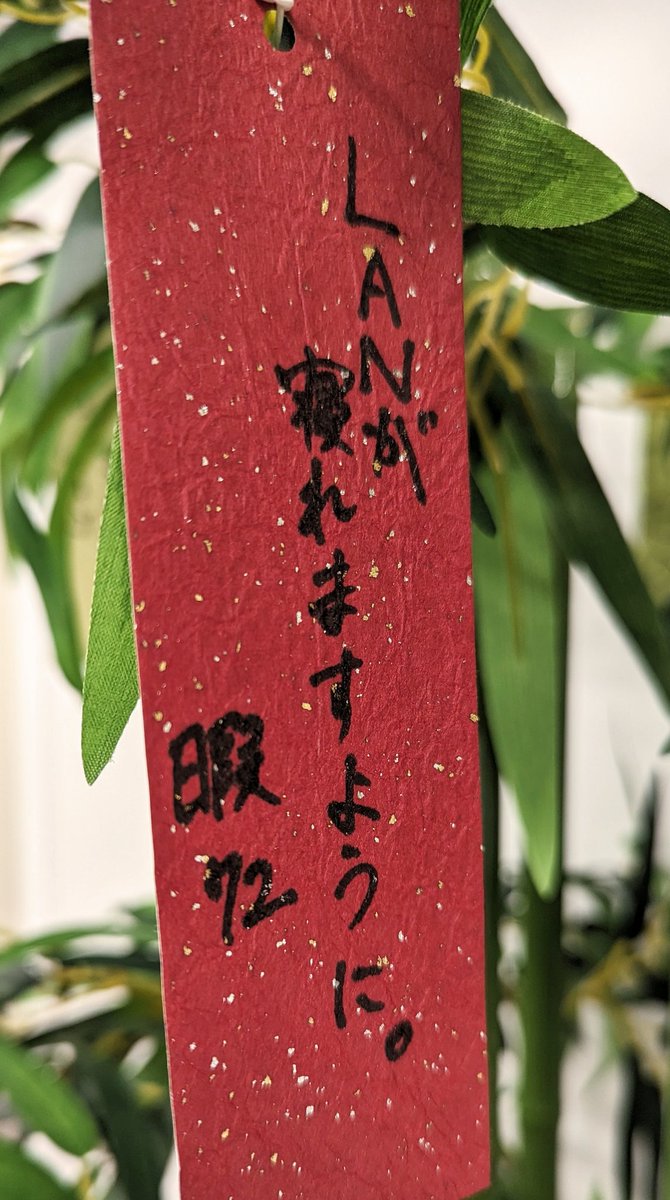 LANが
寝れますように。
暇72